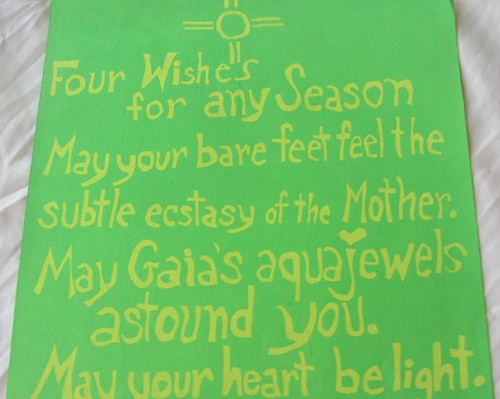 Four Wishes
for any Season
May your bare feet feel the
subtle ecstasy of the Mother.
May Gaia's aquajewels
astound you.
May your heart be light.